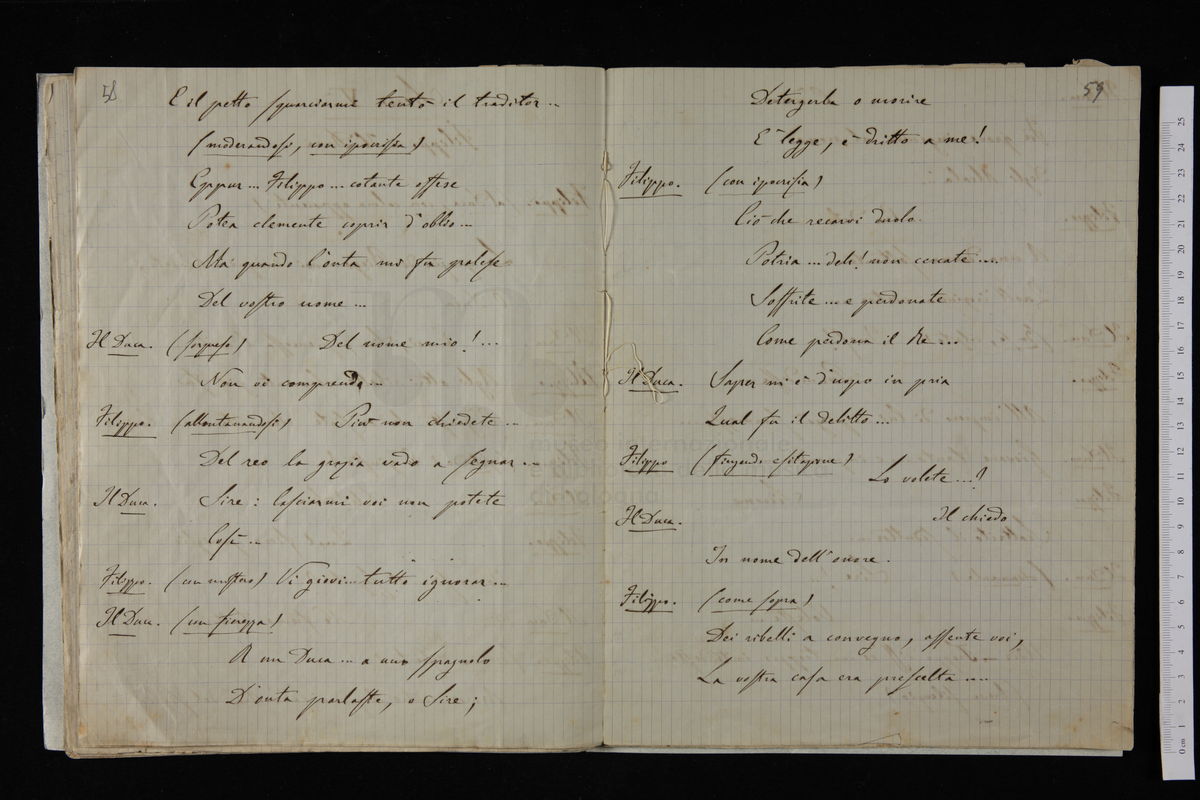 58
E il petto squarciarmi tentò il traditor...
(moderandosi, con ipocrisia)
Eppur... Filippo... cotante offese
Potea clemente coprir d'oblio...
Ma quando l'onta mi fu palese
Del vostro nome...
Il Duca. (sorpreso) Del nome mio!...
Non vi comprendo...
Filippo. (allontanandosi) Più non chiedete...
Del reo la grazia vado a segnar...
Il Duca. Sire: lasciarmi voi non potete
Così...
Filippo. (con mistero) Vi giovi... tutto ignorar...
Il Duca. (con fierezza)
A un Duca... a uno spagnolo
D'onta parlaste, o Sire;
59
Detergerla o morire
È legge, è dritto a me!
Filippo. (con ipocrisia)
Ciò che recarvi duolo
Potria... deh! non cercate....
Soffrite... e perdonate
Come perdona il Re...
Il Duca. Saper mi è d'uopo in pria
Qual fu il delitto...
Filippo (fingendo esitazione)
Lo volete...?
Il Duca. Il chiedo
In nome dell'onore.
Filippo. (come sopra)
Dei ribelli a convegno, assente voi,
La vostra casa era prescelta....